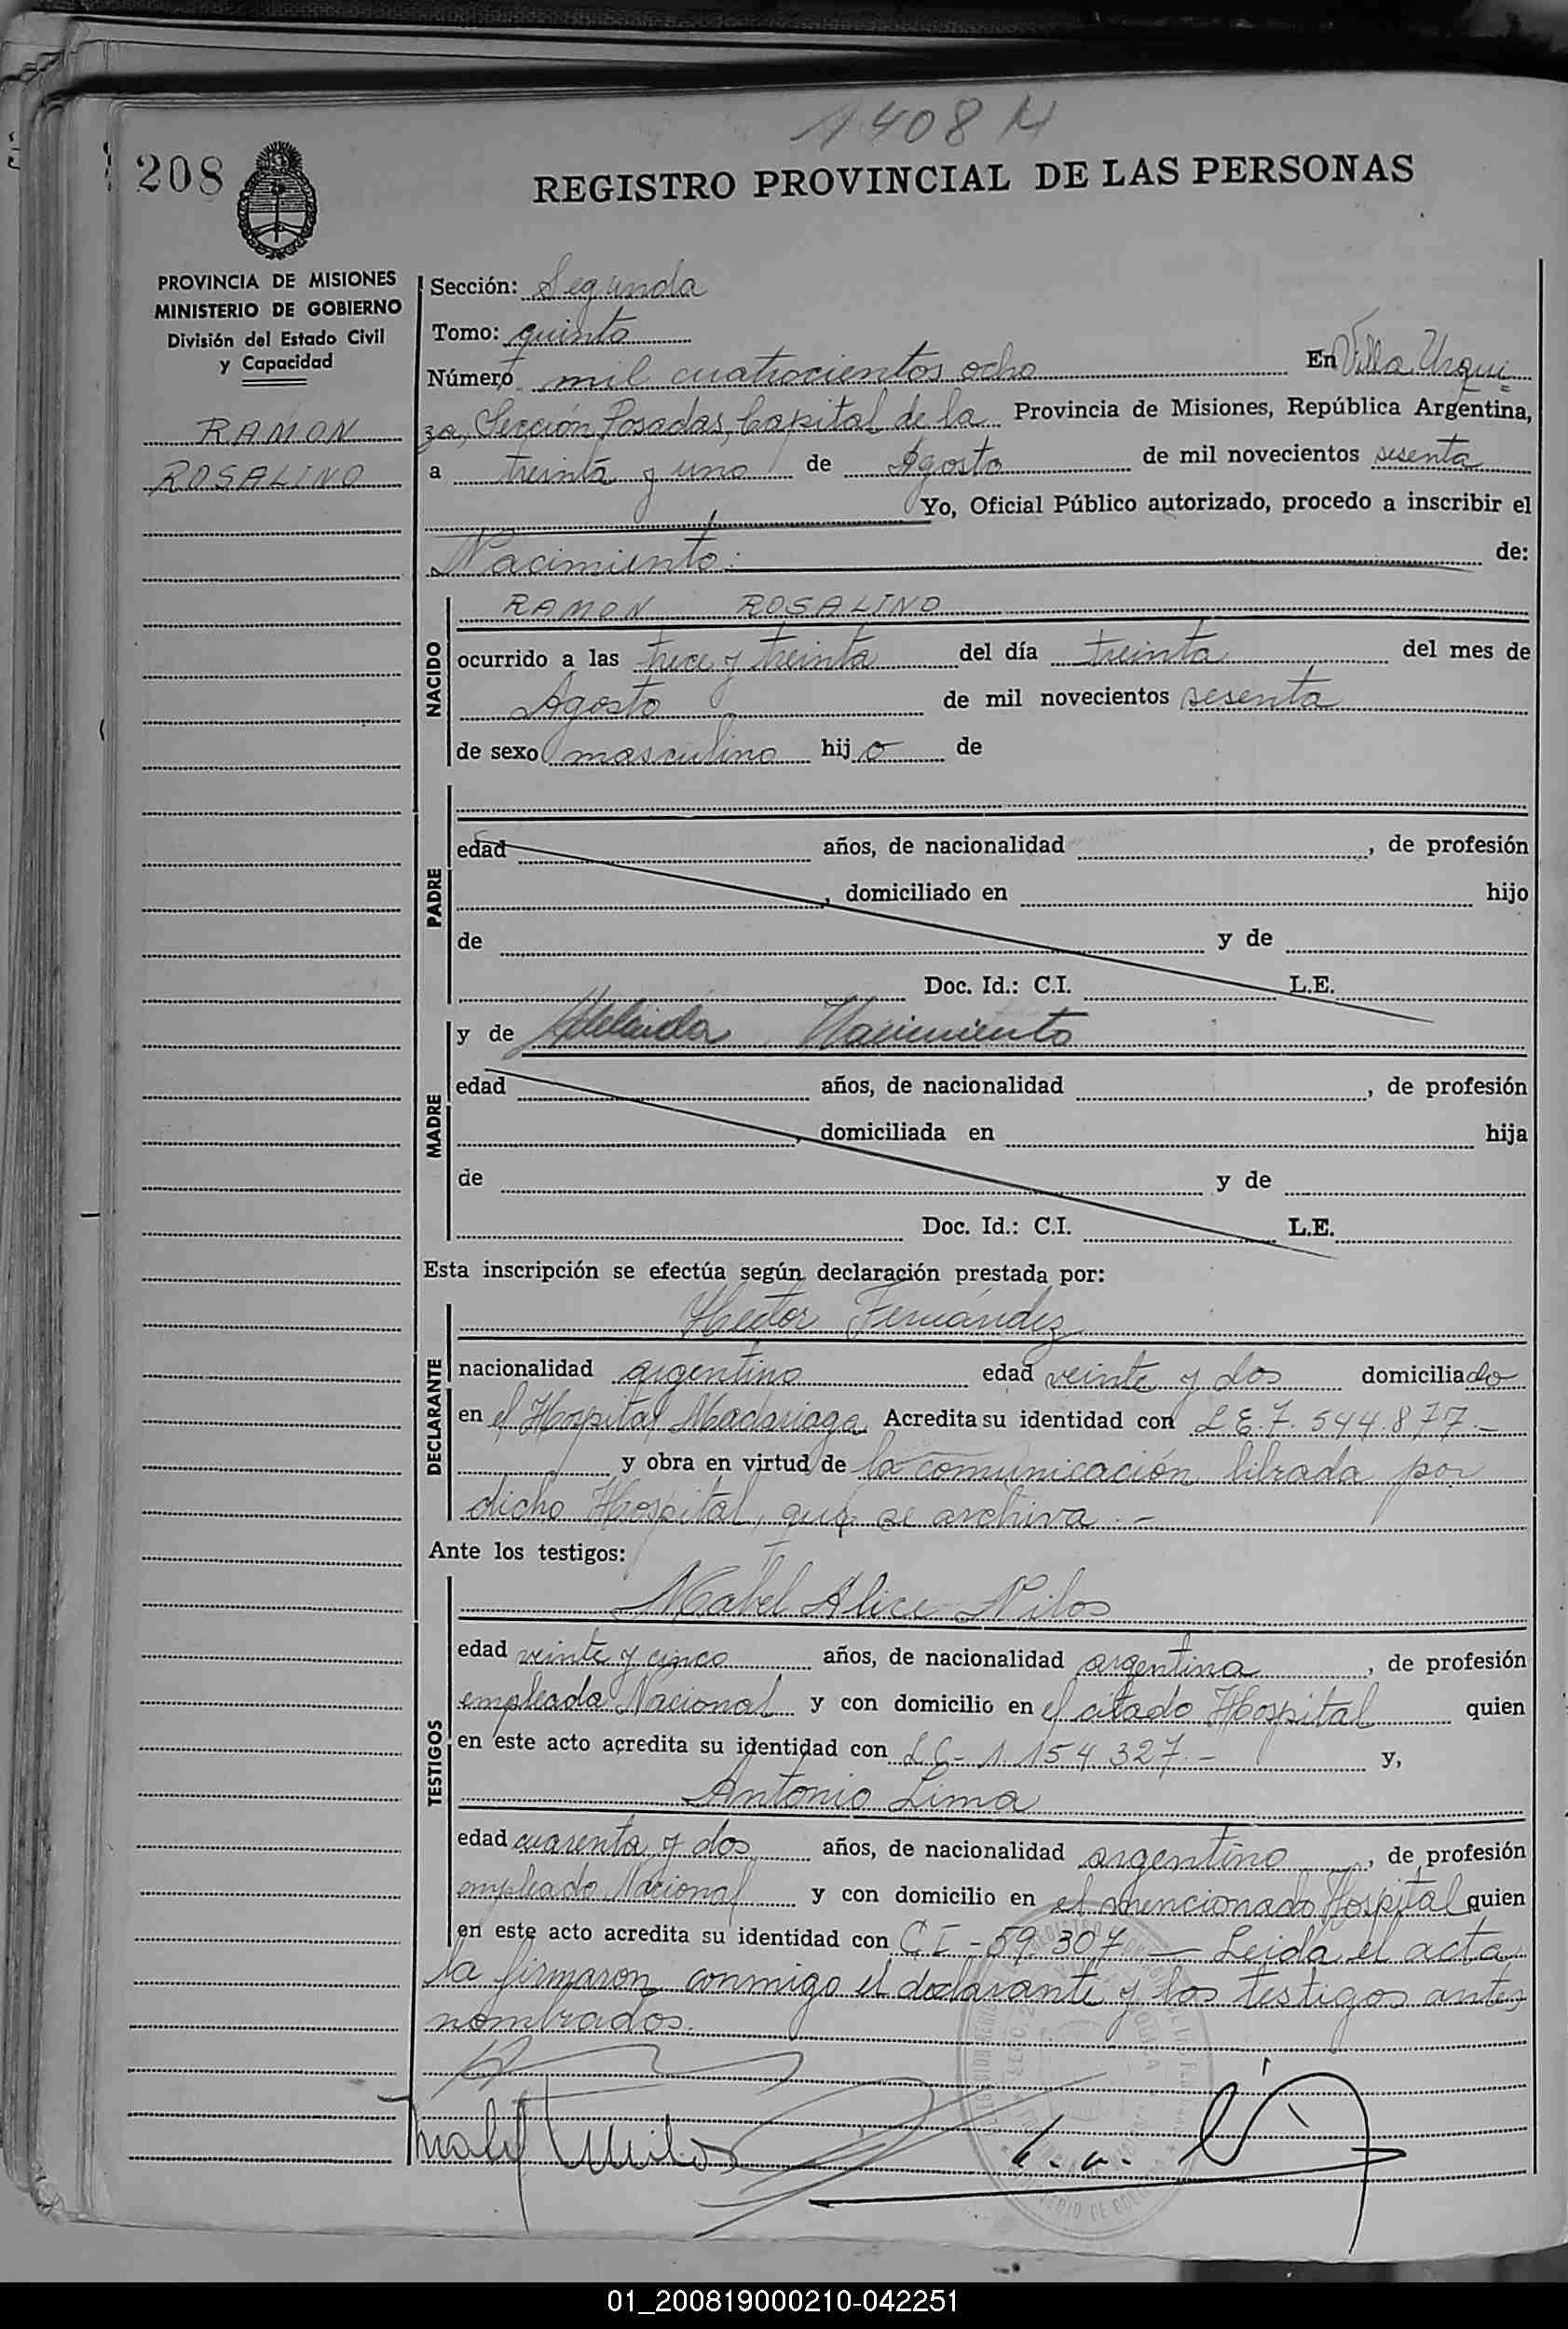 1408 N
208
REGISTRO PROVINCIAL DE LAS PERSONAS
PROVINCIA DE MISIONES
MINISTERIO DE GOBIERNO
División del Estado Civil
y Capacidad
RAMON
ROSALINO
Sección: Segunda
Tomo: quinto
Número mil cuatrocientos ocho En Villa Urqui=
za, Sección Posadas, Capital de la Provincia de Misiones, República Argentina,
a treinta y uno de Agosto de mil novecientos sesenta
Yo, Oficial Público autorizado, procedo a inscribir el
Nacimiento: de:
NACIDO
RAMON ROSALINO
ocurrido a las trece y treinta del día treinta del mes de
Agosto de mil novecientos sesenta
de sexo masculino hijo de
PADRE
edad años, de nacionalidad , de profesión
, domiciliado en hijo
de y de
Doc. Id.: C.I. L.E.
MADRE
y de Nacimiento
edad años, de nacionalidad , de profesión
, domiciliada en hija
de y de
Doc. Id.: C.I. L.E.
Esta inscripción se efectúa según declaración prestada por:
DECLARANTE
Hector Fernández
nacionalidad argentino edad veinte y dos domiciliado
en el Hospital Madariaga Acredita su identidad con L E. 7. 544. 877.-
y obra en virtud de la comunicación librada por
dicho Hospital, que se archiva.-
Ante los testigos:
TESTIGOS
Mabel Alice Nilos
edad veinte y cinco años, de nacionalidad argentina , de profesión
empleada Nacional y con domicilio en el citado Hospital quien
en este acto acredita su identidad con L C- 1. 154 327.- y,
Antonio Lima
edad cuarenta y dos años, de nacionalidad argentino , de profesión
empleado Nacional y con domicilio en el mencionado Hospital quien
en este acto acredita su identidad con C I - 59 307 — Leida el acta
la firmaron conmigo el declarante y los testigos antes
nombrados.
01_200819000210-042251